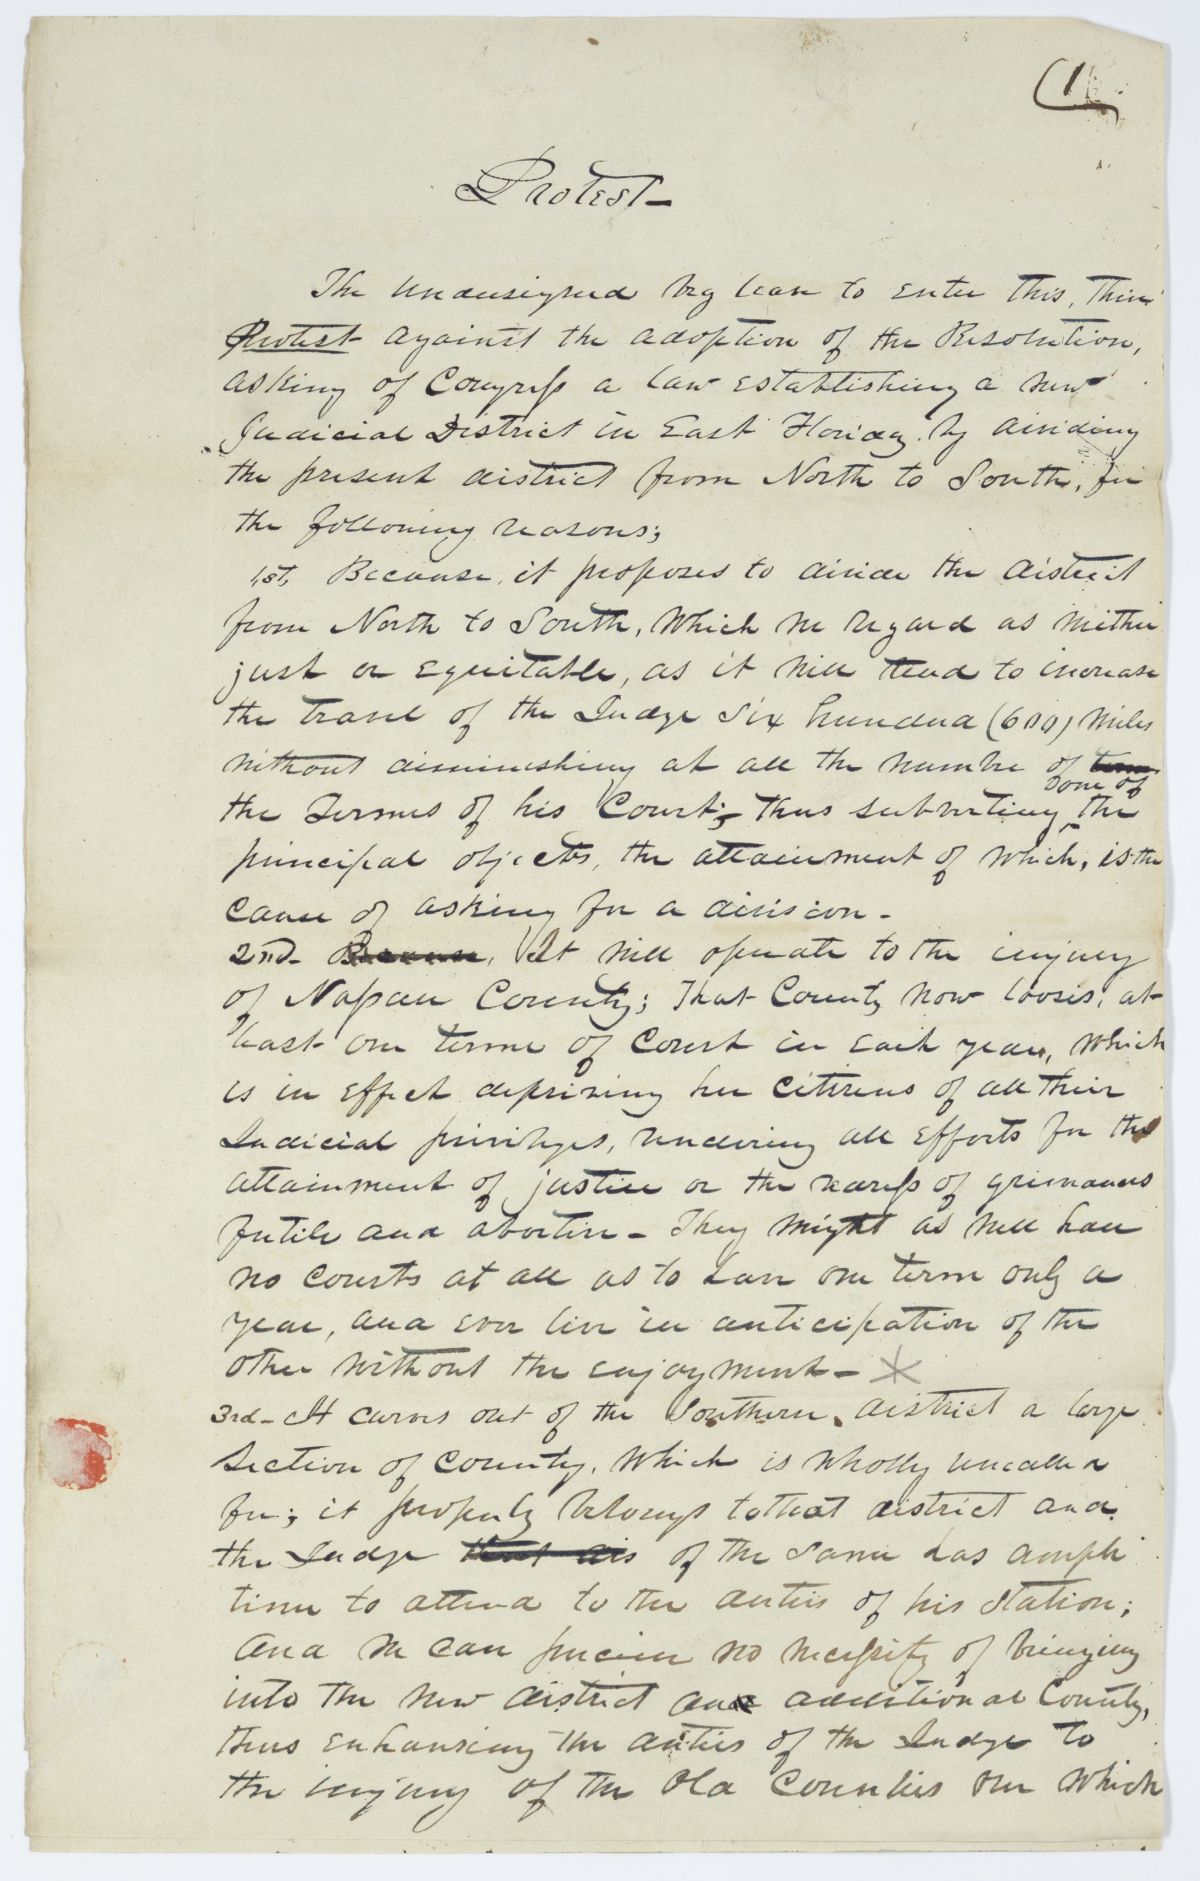 (1
Protest-
The Undersigned beg leave to enter this, their
Protest against the adoption of the Resolution,
asking of Congress a law establishing a new
Judicial District in East Florida, by dividing
the present district from North to South, for
the following reasons;
1st, Because, it proposes to divide the district
from North to South, which we regard as neither
just or equitable, as it will tend to increase
the travel of the Judge Six hundred (600) miles
without diminishing at all the number of term
the Termes of his Court; thus subverting one of the
principal objects, the attainment of which, is the
cause of asking for a division-
2nd- Because, It will operate to the injury
of Nassau County; That County now looses, at-
least one terme of Court in each year, which
is in effect depriving her citizens of all their
Judicial privileges, rendering all efforts for the
attainment of justice or the redress of grievances
futile and abortive- They might as well have
no courts at all as to have one term only a
year, and ever live in anticipation of the
other without the enjoyment-
3rd- It carves out of the Southern district a large
Section of County, which is wholly uncalled
for; it properly belongs to that district and
the Judge that dis of the same has ample
time to attend to the duties of his station;
and we can perceive no necessity of bringing
into the new district and additional County,
thus enhancing the duties of the Judge to
the injury of the old Counties over which